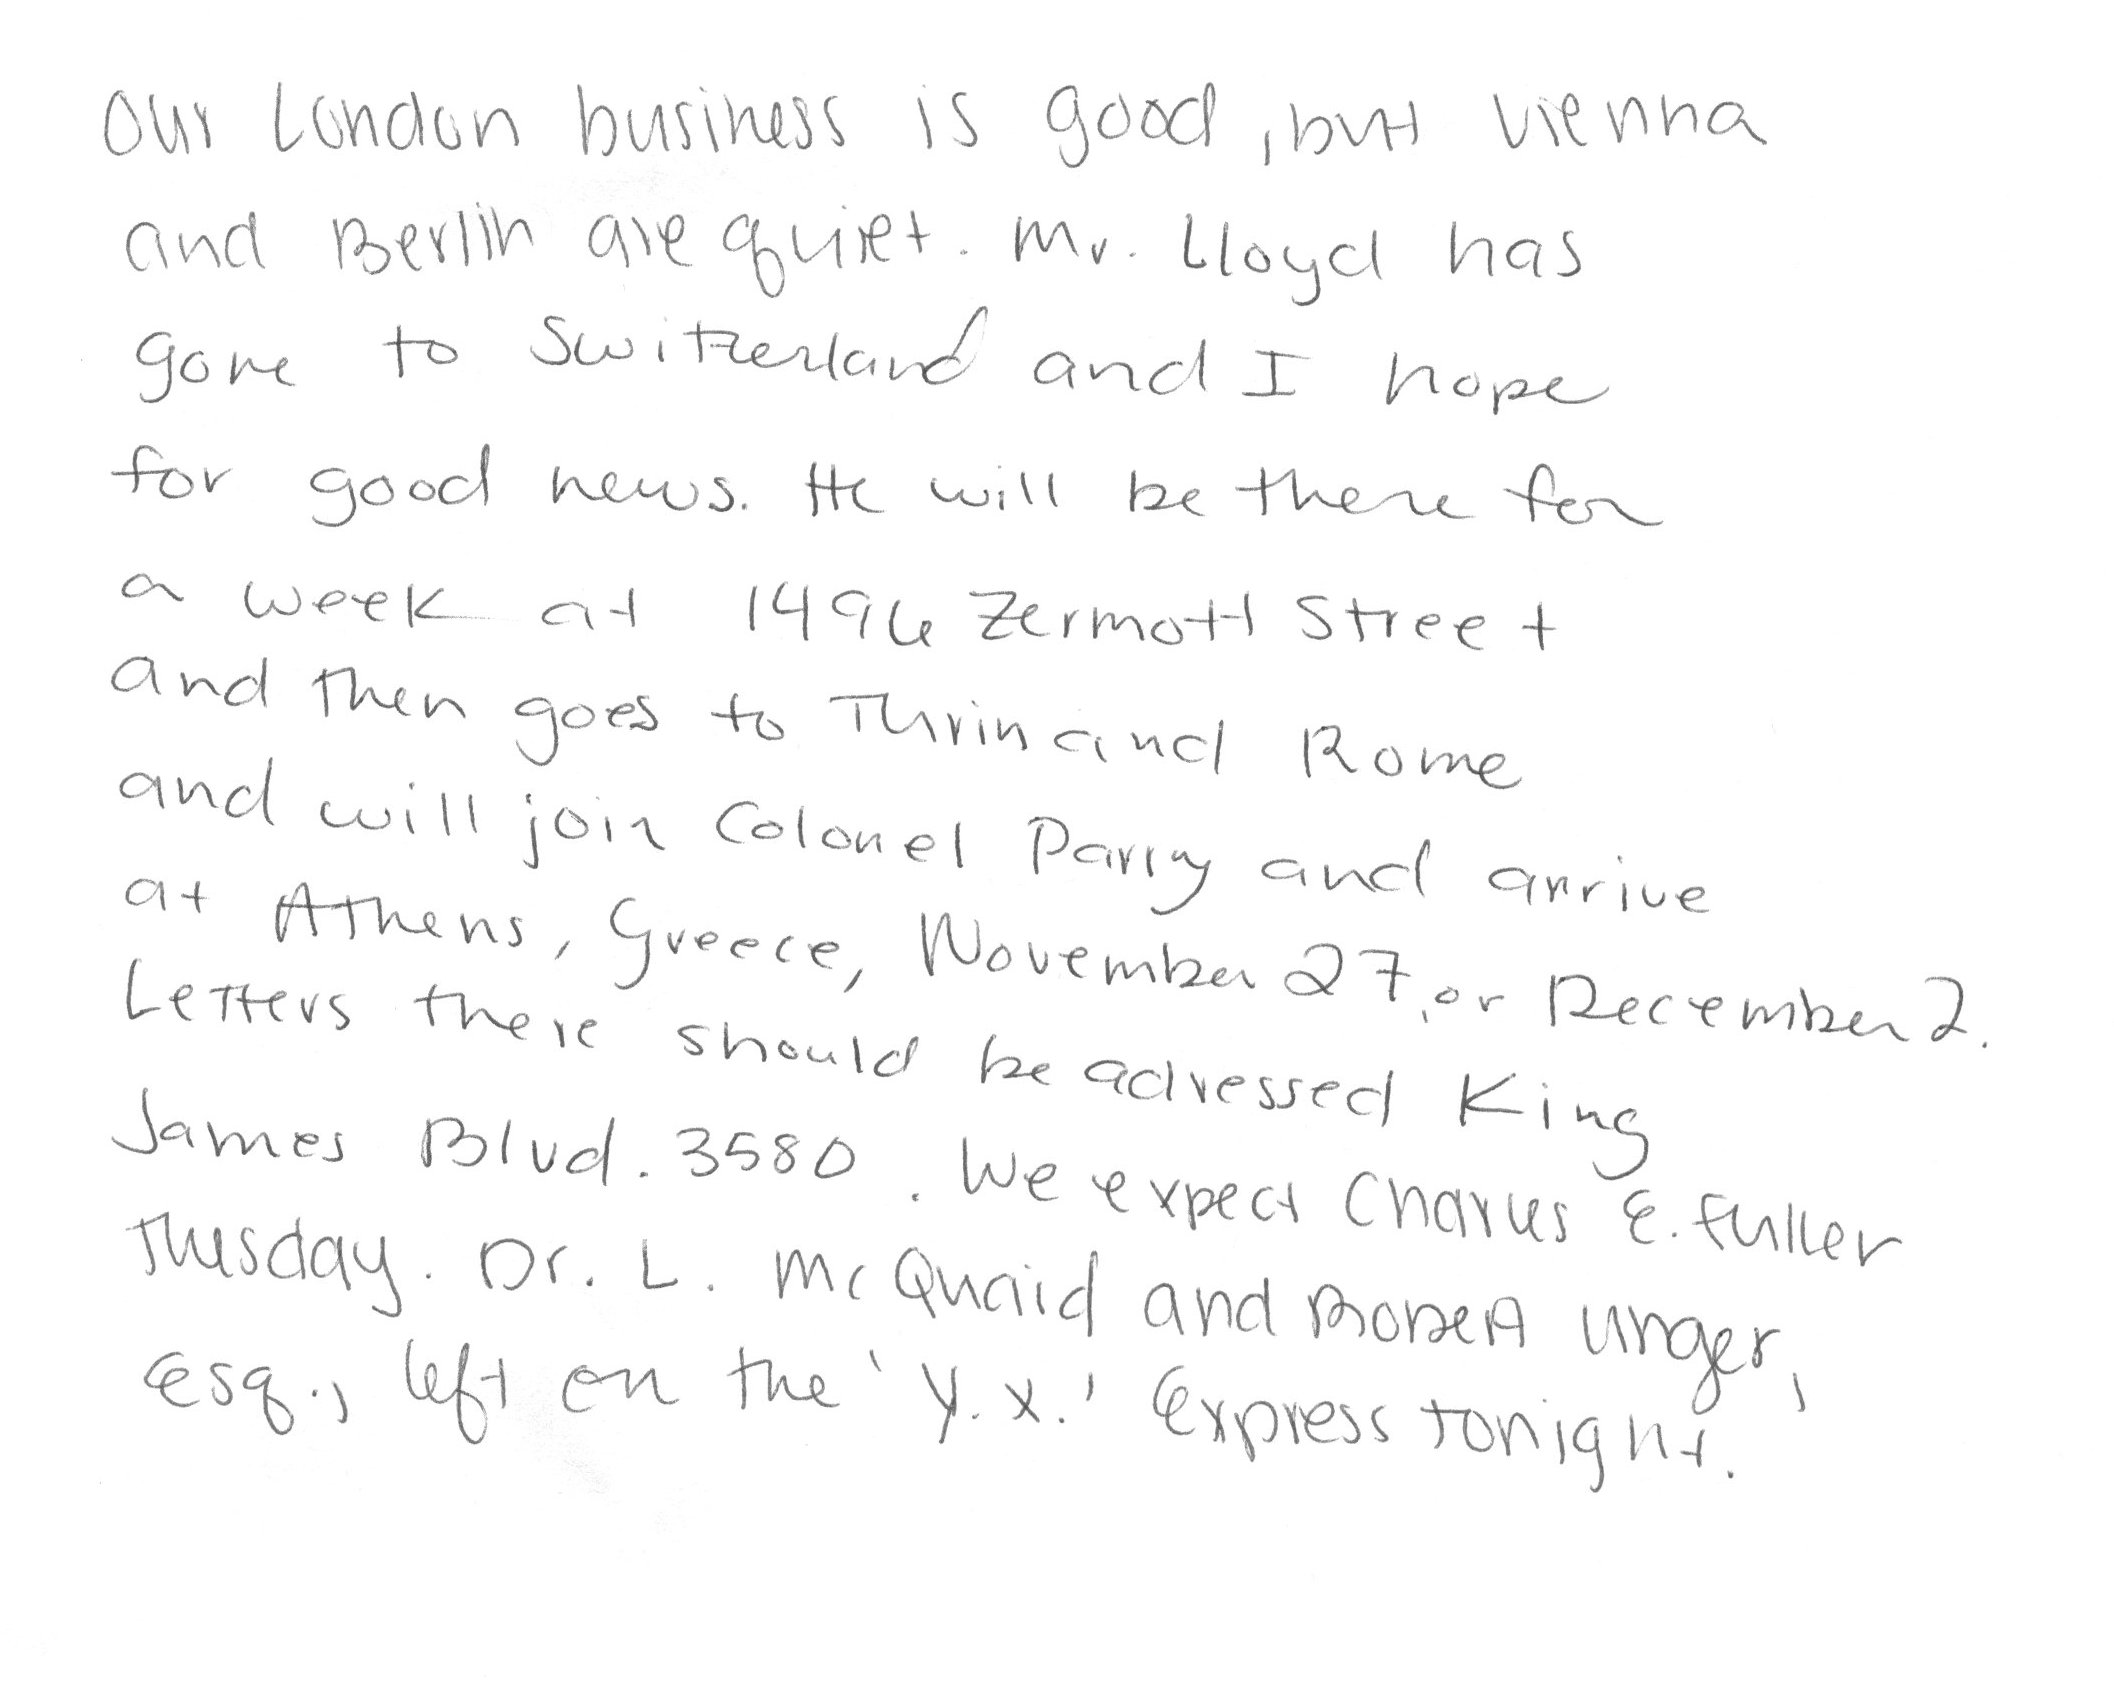 Our London business is good, but Vienna
and Berlin are quiet. Mr. Lloyd has
gone to Switzerland and I hope
for good news. He will be there for
a week at 1496 Zermott Street
and then goes to Turin and Rome
and will join Colonel Parry and arrive
at Athens, Greece, November 27, or December 2.
Letters there should be adressed King
James Blvd. 3580. We expect Charles E. Fuller
Tuesday. Dr. L. McQuaid and Robert Unger,
Esq., left on the 'Y.X.' Express tonight.